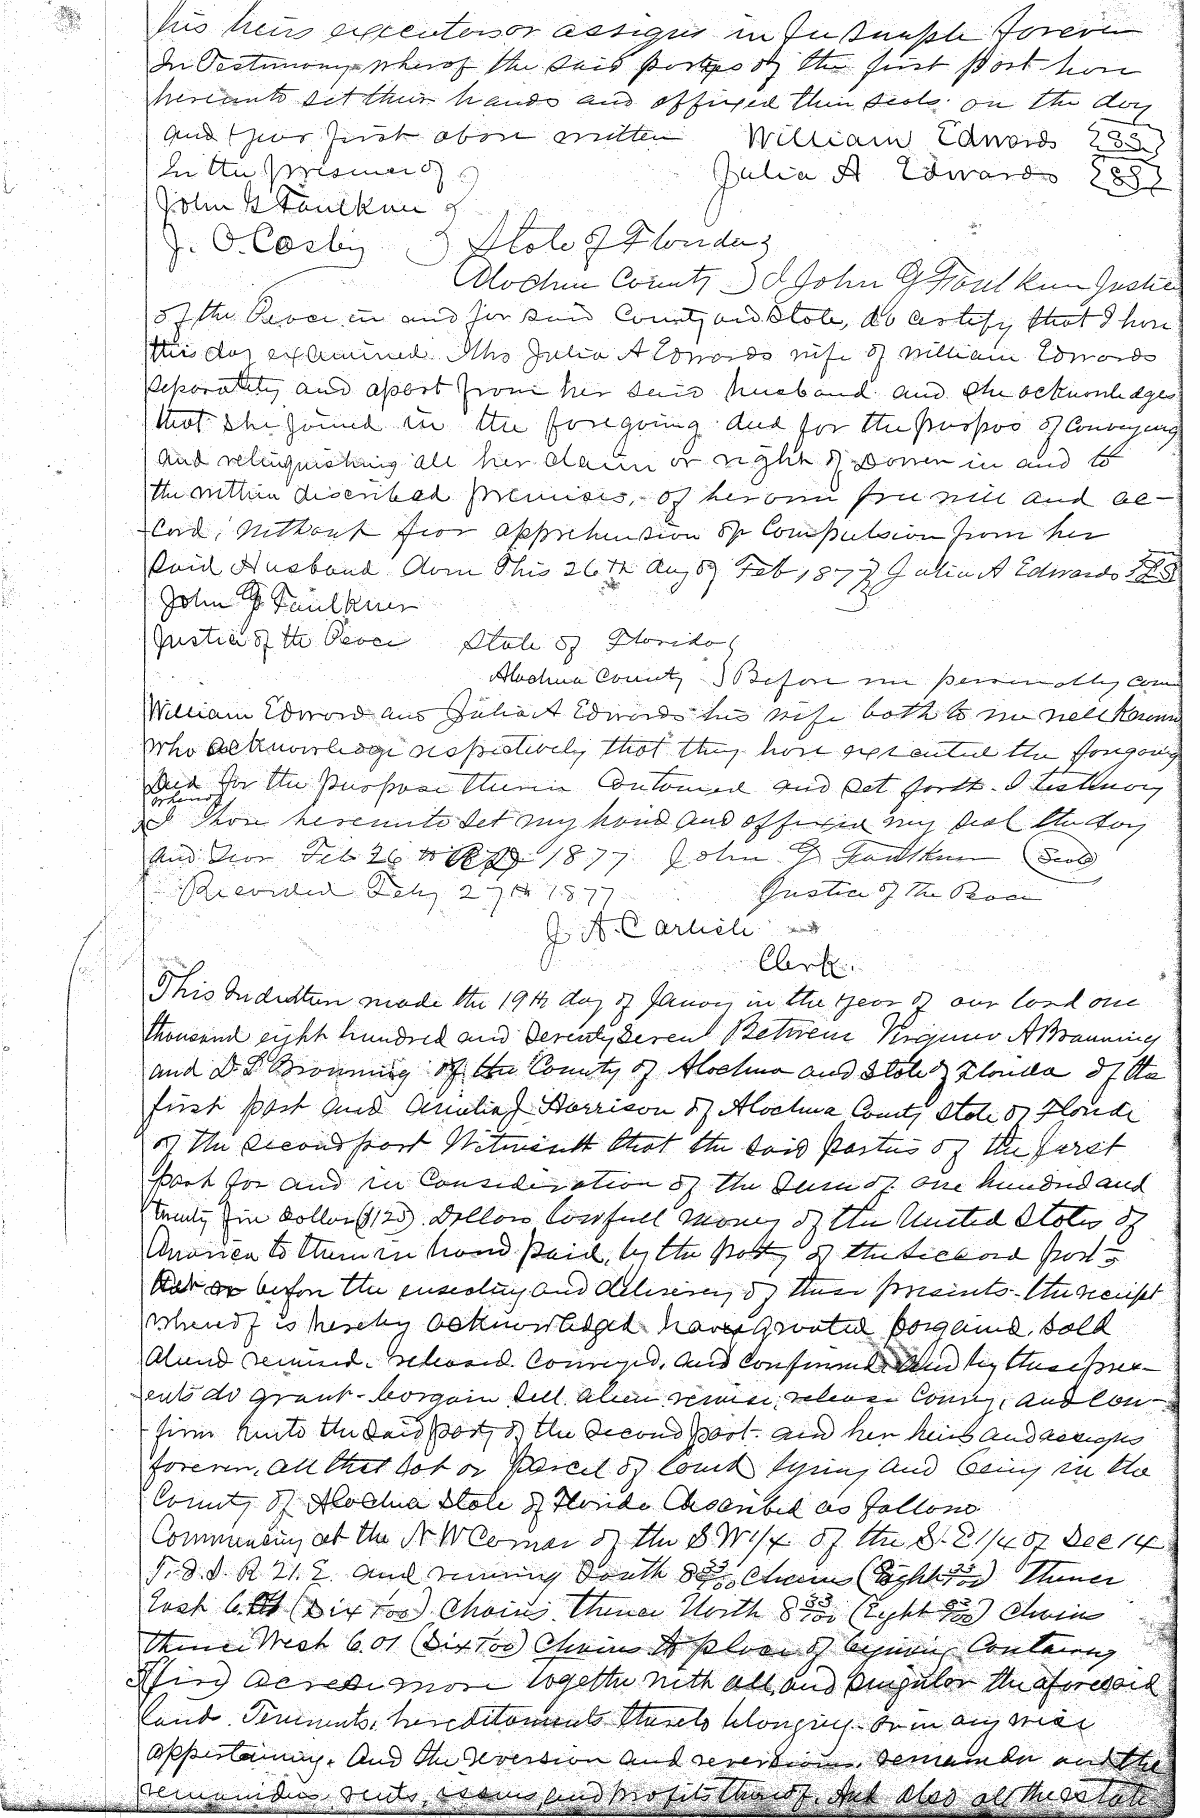 his heirs executors or assigns in fee simple forever
In Testimony wherof the said parties of the first part have
hereunto set their hands and affixed their seals on the day
and year first above written William Edwards {SS}
In the presence of Julia A Edwards {SS}
John G Faulkner
J. O. Cosby } State of Florida }
Alachua County } I John G Faulkner Justice
of the Peace in and for said County and State, do certify that I have
this day examined Mrs Julia A Edwards wife of William Edwards
seperately and apart from her said husband and she acknowledges
that she joined in the foregoing deed for the purpos of conveying
and relinquishing all her claim or right of Dower in and to
the within discribed premises, of her own free will and ac-
cord, without fear apprehension or Compulsion from her
said Husband. Done This 26th day of Feb 1877 Julia A Edwards {LS}
John G Faulkner
Justice of the Peace State of Florida }
Alachua County } Before me personally came
William Edward and Julia A Edwards his wife both to me well known
who acknowledge respectively that they have executed the foregoing
Deed for the purpose therein Contained and set forth. I testimony
whereof
I have hereunto set my hand and affixed my seal the day
and year Feb 26th AD 1877 John G Faulkner (Seal)
Recorded Feby 27th 1877 Justice of the Peace
J. A. Carlisle
Clerk.
This Indenture made the 19th day of Janary in the year of our lord one
thousand eight hundred and seventy seven Between A Branning
and D. L Branning of the County of Alachua and State of Florida of the
first part and J Harrison of Alachua County State of Florida
of the second part Witnesseth that the said parties of the first
part for and in Consideration of the Sum of one hundred and
twenty five dollars ($125) Dollars lawfull money of the United States of
America to them in hand paid, by the party of the second part
at or before the ensealing and delivery of these presents. the receipt
whereof is hereby acknowledged have granted bargained, sold
aliend remised. released. conveyed, and confirmed and by these pres-
ents do grant- bargain sell alien remise, release convey, and con-
firm unto the said party of the second part and her heirs and assigns
forever, all that lot or parcel of land lying and being in the
County of Alachua State of Florida described as follows
Commencing at the N W Corner of the S. W 1/4 of the S. E 1/4 of Sec 14
T. 8. S. R 21. E. and running South 8 33/100 chains (Eight 33/100) thence
East 6.01 (Six 1/00) chains. thence North 8 33/100 (Eight 33/100) chains
thence West 6.01 (Six 1/00) chains to place of begining Containing
5 (five) acres more together with all and singular the aforesaid
land. Teniments, hereditaments thereto belonging or in any wise
appertaining. And the reversion and reversions, remainder and the
remainders rents, issues and profits thereof. And also all the estate